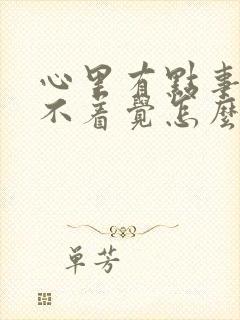 心里有點事
不着覺怎麼
單芳